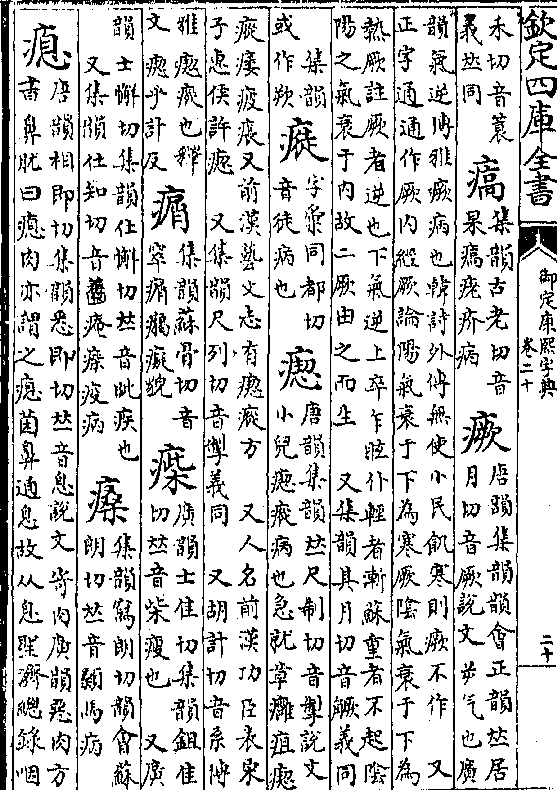 欽定四庫全書 御定康熙字典 卷二十 二十
禾切音蓑
義𠀤同
㾸
集韻古老切音
杲㾸疙疥病
瘚
唐韻集韻韻會正韻𠀤居
月切音厥說文屰气也廣
韻氣逆博雅瘚病也韓詩外傳無使小民飢寒則瘚不作 又
正字通通作厥內經厥論陽氣衰于下為寒厥陰氣衰于下為
熱厥註厥者逆也下氣逆上卒乍眩仆輕者漸蘇重者不起陰
陽之氣衰于內故二厥由之而生 又集韻其月切音鱖義同
集韻
或作欮
字彙同都切
音徒病也
瘛
唐韻集韻𠀤尺制切音掣說文
小兒瘛瘲病也急就章癰疽瘛
瘲痿疲又前漢藝文志有瘛瘲方 又人名前漢功臣表杲
子惠侯許瘛 又集韻尺列切音掣義同 又胡計切音系博
雅瘛瘲也釋
文瘛乎計反
集韻蘇骨切音
窣癡貌
㾹
廣韻士佳切集韻鉏佳
切𠀤音柴瘦也 又廣
韻士懈切集韻仕懈切𠀤音眦疾也
又集韻仕知切音齹痷㾹疫病
集韻寫朗切韻會蘇
朗切𠀤音顙馬病
瘜
唐韻相即切集韻悉即切𠀤音息說文寄肉廣韻惡肉方
書鼻肬曰瘜肉亦謂之瘜菌鼻通息故从息聖濟總錄咽